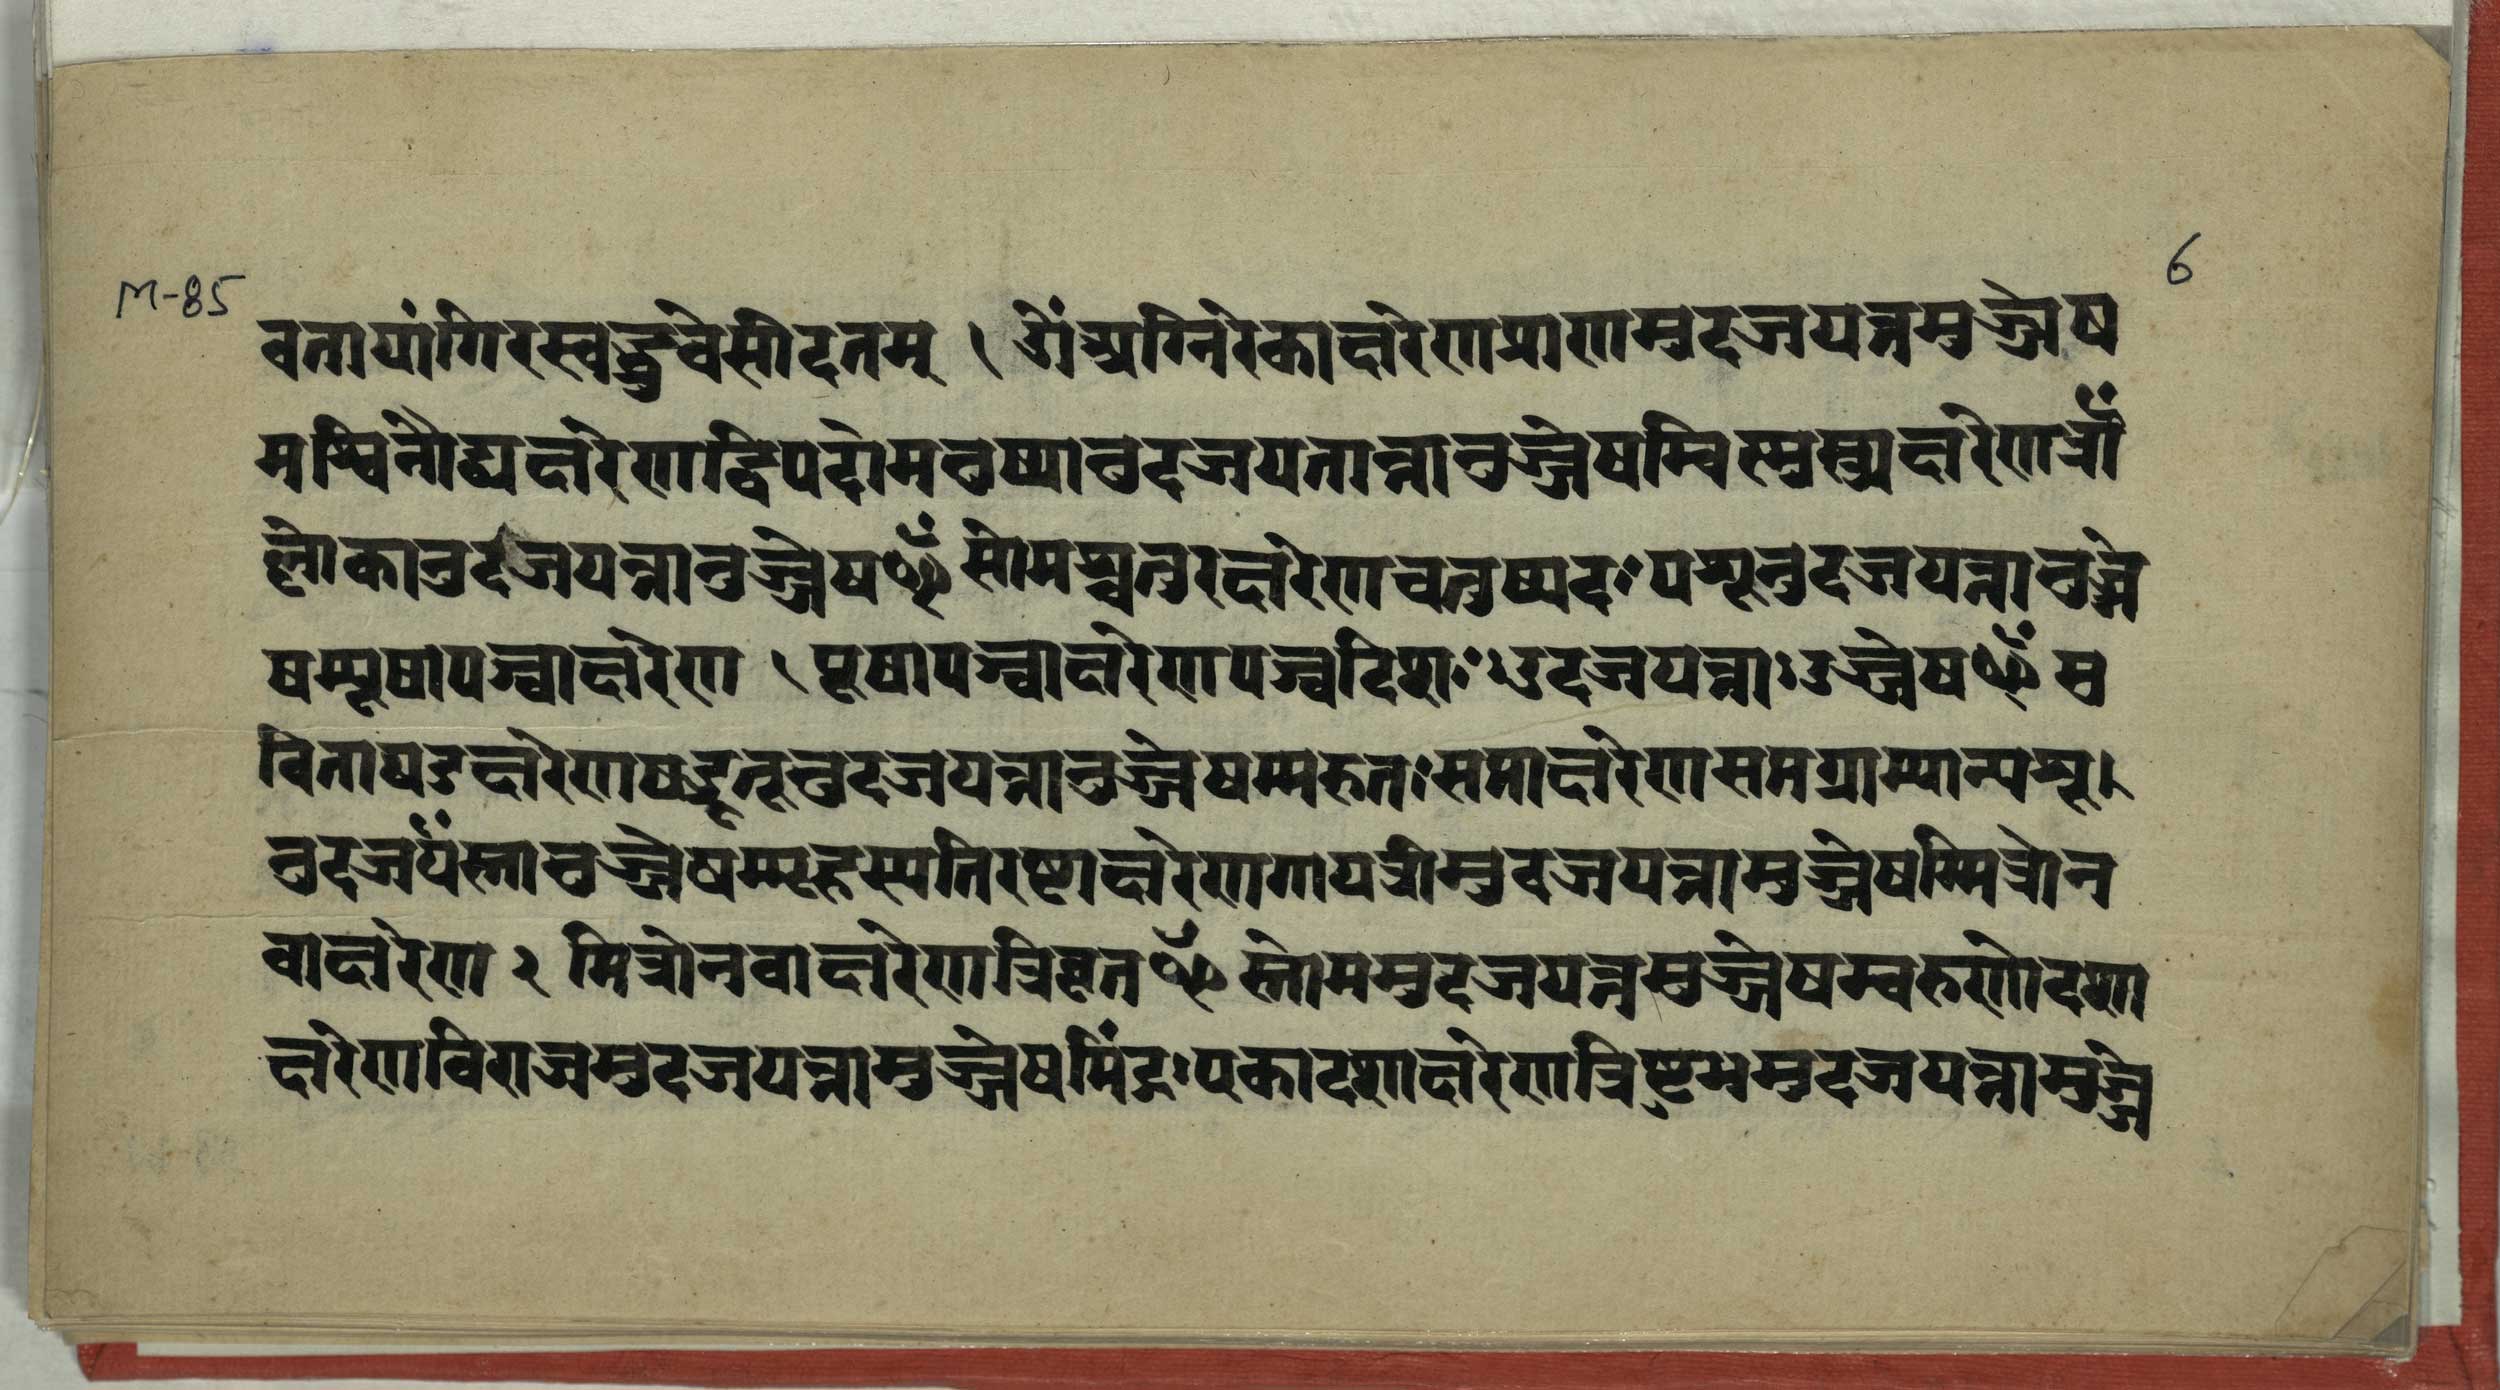 M-85
6
वतायांगिरस्वद्ध्रुवेसीदतम् । ओंअग्निरेकाक्षरेणप्राणमुदजयत्तमुज्जेष
मश्विनौद्व्यक्षरेणद्विपदोमनुष्यानुदजयतान्तानुज्जेषम्विष्णुस्त्र्यक्षरेणत्रीँ
ल्लोकानुदजयत्तानुज्जेषꣳसोमश्चतुरक्षरेणचतुष्पदःपशूनुदजयत्तानुज्जे
षम्पूषापञ्चाक्षरेण । पूषापञ्चाक्षरेणपञ्चदिशःउदजयत्ताःउज्जेषꣳस
विताषडक्षरेणषडृतूनुदजयत्तानुज्जेषम्मरुतःसप्ताक्षरेणसप्तग्राम्यान्पशू।
नुदजयँस्तानुज्जेषम्बृहस्पतिरष्टाक्षरेणगायत्रीमुदजयत्तामुज्जेषम्मित्रोन
वाक्षरेण २ मित्रोनवाक्षरेणत्रिवृतꣳस्तोममुदजयत्तमुज्जेषम्वरुणोदशा
क्षरेणविराजमुदजयत्तामुज्जेषमिंद्रःएकादशाक्षरेणत्रिष्टुभमुदजयत्तामुज्जे